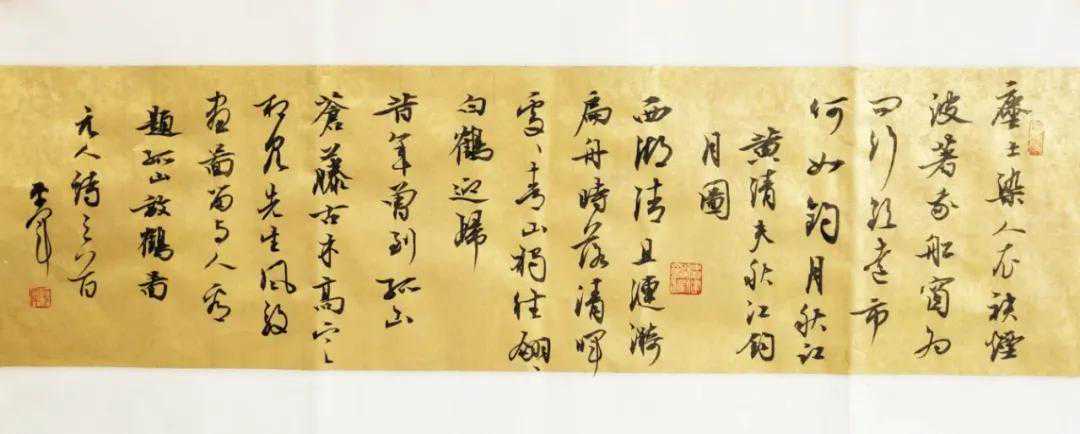 塵土染人衣袂煙
波著我船窗為
问行市
何如钓月秋江
黄清夫秋江钓
月圖
西湖清且漣漪
扁舟時蕩清暉
處、青山獨往翩、
白鶴迎歸
昔年曾到孤山
蒼藤古木高寒
想見先生風致
畫圖留与人看
題孤山放鶴圖
元人詩